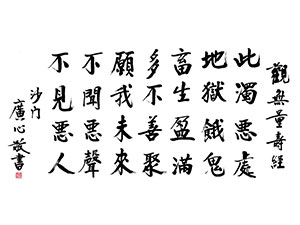 觀無量壽經
此濁惡處
地獄餓鬼
畜生盈滿
多不善聚
願我未來
不聞惡聲
不見惡人
沙門
廣心敬書